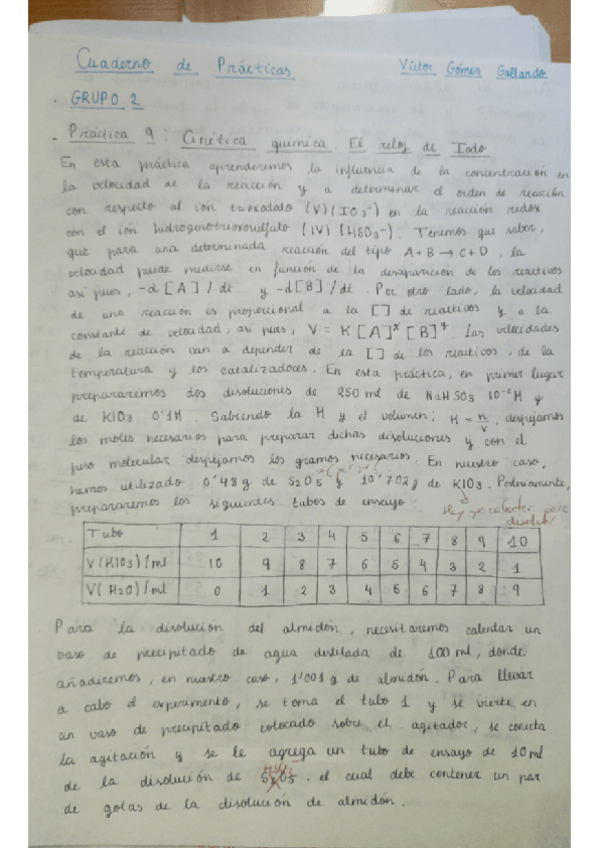 Cuaderno de Prácticas Víctor Gómez Gallardo
. GRUPO 2
- Práctica 9: Cinética química. El reloj de Iodo
En esta práctica aprenderemos la influencia de la concentración en
la velocidad de la reacción y a determinar el orden de reacción
con respecto al ion trioxodato (V) (IO3-) en la reacción redox
con el ion hidrogenotrioxosulfato (IV) (HSO3-). Tenemos que saber,
que para una determinada reacción del tipo A+B → C+D, la
velocidad puede medirse en función de la desaparición de los reactivos
así pues, -d[A]/dt y -d[B]/dt. Por otro lado, la velocidad
de una reacción es proporcional a la [] de reactivos y a la
constante de velocidad, así pues, V = K[A]^x [B]^y. Las velocidades
de la reacción van a depender de la [] de los reactivos, de la
temperatura y los catalizadores. En esta práctica, en primer lugar
prepararemos dos disoluciones de 250 ml de NaHSO3 10^-2 M y
de KIO3 0'1M. Sabiendo la M y el volumen; M = n/v, despejamos
los moles necesarios para preparar dichas disoluciones y con el
peso molecular despejamos los gramos necesarios. En nuestro caso,
hemos utilizado 0'48g de S2O5 y 10'702g de KIO3. Posteriormente,
prepararemos los siguientes tubos de ensayo:
Hay que calentar para
Tubo 1 2 3 4 5 6 7 8 9 10
V(KIO3)/ml 10 9 8 7 6 5 4 3 2 1
V(H2O)/ml 0 1 2 3 4 5 6 7 8 9
Para la disolución del almidón, necesitaremos calentar un
vaso de precipitado de agua destilada de 100 ml, donde
añadiremos, en nuestro caso, 1'001g de almidón. Para llevar
a cabo el experimento, se toma el tubo 1 y se vierte en
un vaso de precipitado colocado sobre el agitador, se conecta
la agitación y se le agrega un tubo de ensayo de 10ml
de la disolución de S2O5, el cual debe contener un par
de gotas de la disolución de almidón.